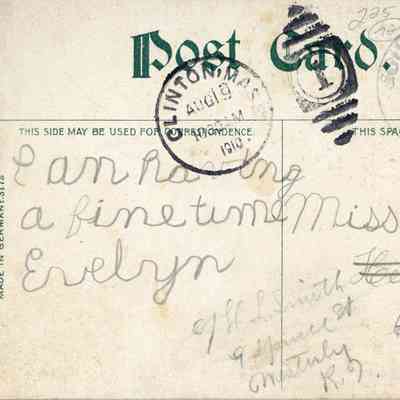 225
Post Card.
CLINTON, MASS.
AUG 19
1910
1
THIS SIDE MAY BE USED FOR CORRESPONDENCE.
THIS SPAC
MADE IN GERMANY.
I am having
a fine time Miss
Evelyn
c/o H L Smith
9 St
Westerly
R. I.